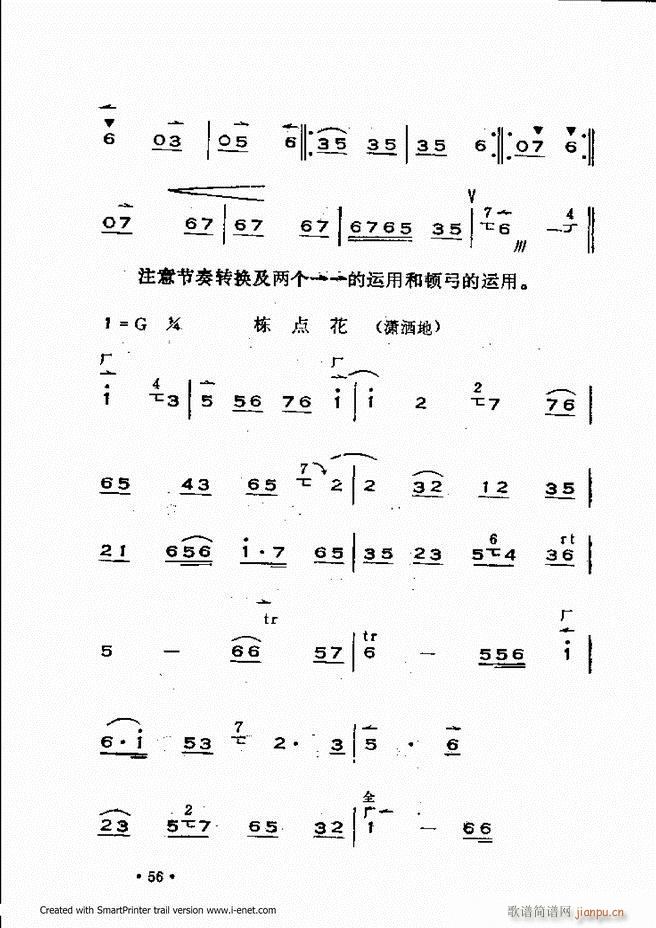 6 03 | 05 6 ‖: 35 35 | 35 6 :‖: 07 6 :‖
V
07 67 | 67 67 | 6765 35 | 7 6 /// — 4 ‖
注意节奏转换及两个一一的运用和顿弓的运用。
1=G 栋点花 (潇洒地)
厂 厂
i 4 3 | 5 56 76 i | i 2 2 7 76 |
65 43 65 7 2 | 2 32 12 35 |
21 656 i·7 65 | 35 23 5 6 4 rt 36 |
5 — tr 66 57 | tr 6 — 556 厂 i |
6·i 53 7 2· 3 | 5 · 6
23 5 2 7 65 32 | 全 厂 1 — 66
·56·
Created with SmartPrinter trail version www.i-enet.com
歌谱简谱网 jianpu.cn